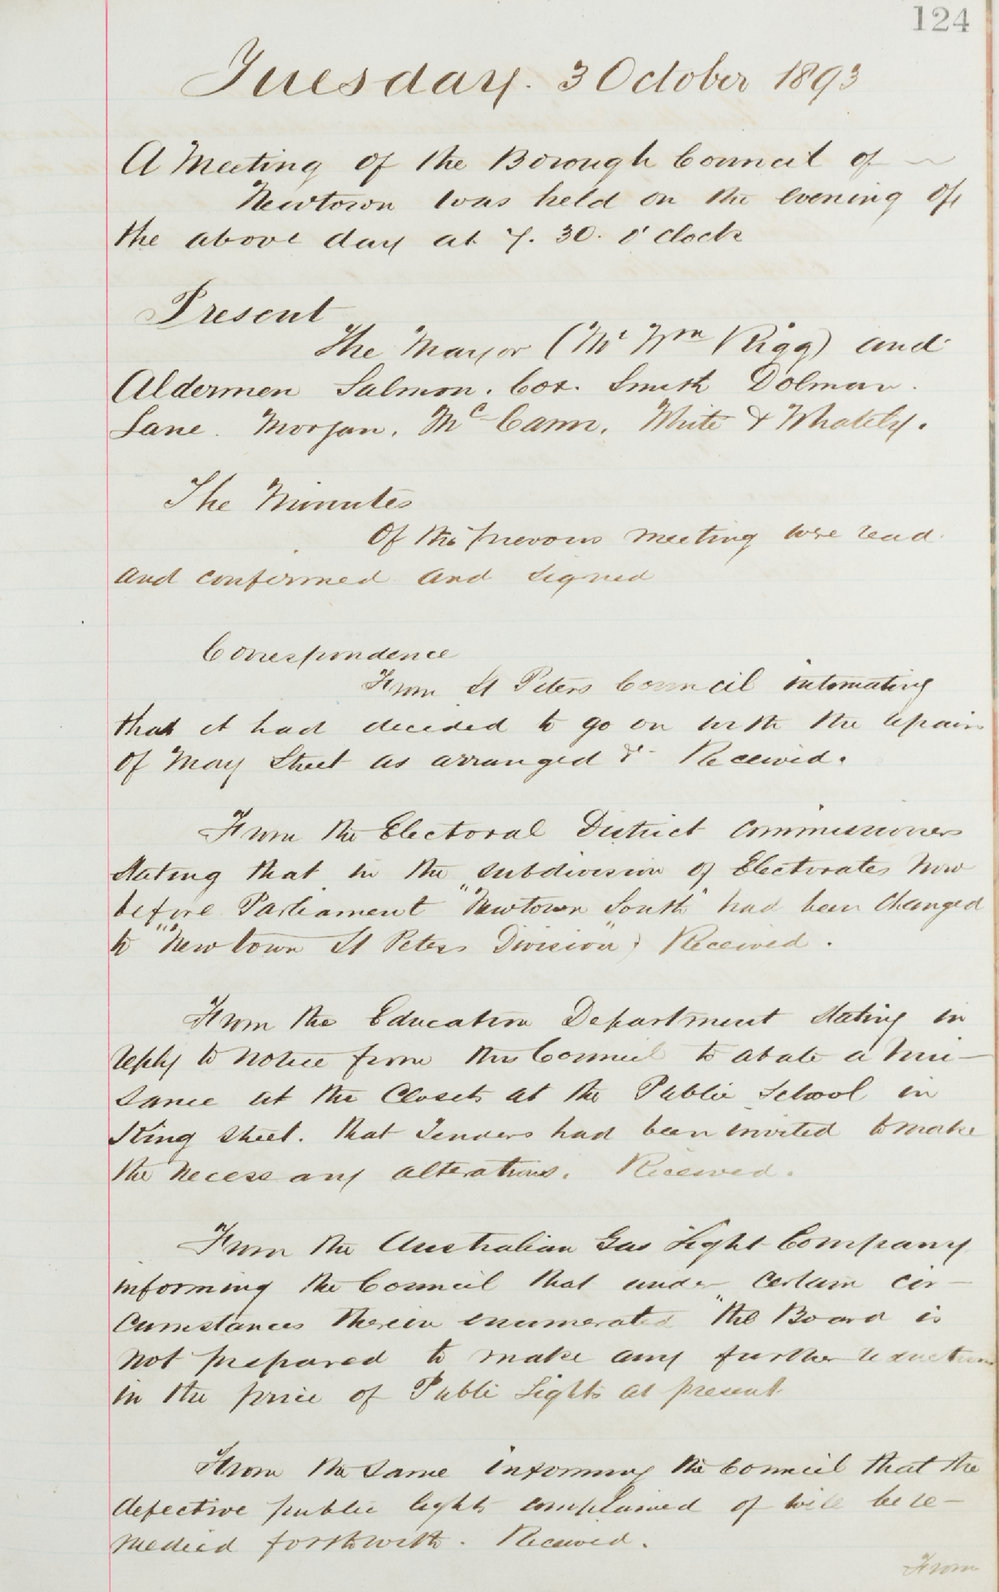 124
Tuesday. 3 October 1893
A Meeting of the Borough Council of
Newtown was held on the evening of
the above day at 7. 30. o'clock
Present
The Mayor (Mr Wm Rigg) and
Aldermen Salmon. Cox. Smith Dolman.
Lane. Morgan. McCann. White & Whately.
The Minutes
Of the previous meeting were read
and confirmed and signed
Correspondence
From St Peters Council intimating
that it had decided to go on with the repairs
of May Street as arranged &c Received.
From the Electoral District Commissioners
stating that in the subdivision of Electorates now
before Parliament "Newtown South" had been changed
to "Newtown St Peters Division"; Received.
From the Education Department stating in
reply to notice from this Council to abate a nui-
sance at the Closets at the Public School in
King Street. that Tenders had been invited to make
the necessary alterations. Received.
From the Australian Gas Light Company
informing the Council that under certain cir-
cumstances therein enumerated "the Board is
not prepared to make any further reduction
in the price of Public Lights at present
From the same informing the Council that the
defective public lights complained of will be re-
medied forthwith. Received.
From